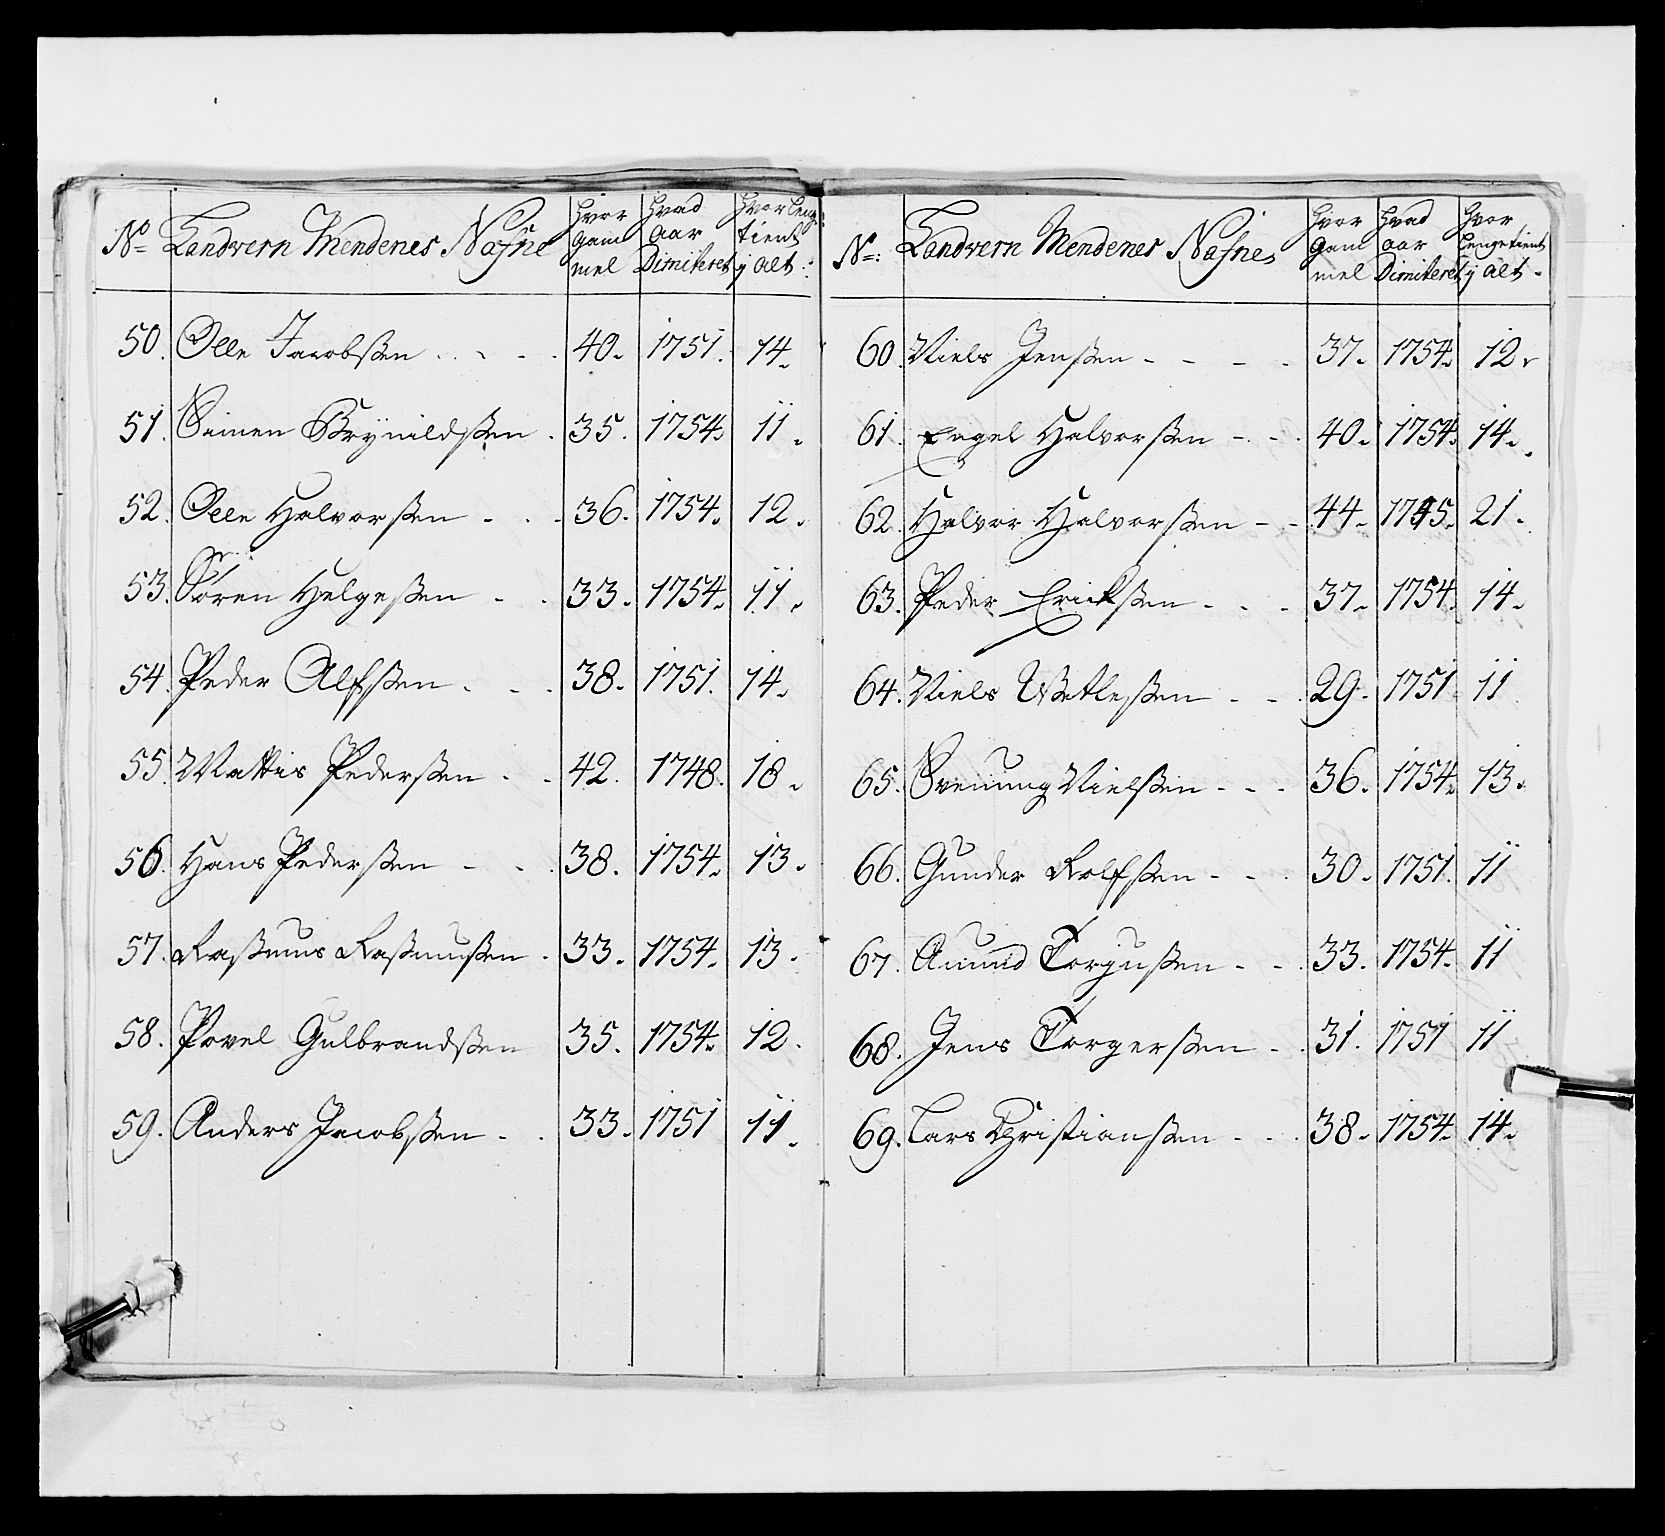 No Landvern Mendenes Nafne Hvor gammel Hvad aar Dimiteret Hvor leng: tient j alt:
50. Olle Jacobßen 40. 1751. 14.
51. Simen Brynildßen 35. 1754. 11.
52. Olle Halvorßen 36. 1754. 12.
53. Søren Helgeßen 33. 1754. 11.
54. Peder Alfßen 38. 1751. 14.
55. Mattis Pederßen 42. 1748. 18.
56. Hans Pederßen 38. 1754. 13.
57. Raßmus Raßmußen 33. 1754. 13.
58. Povel Gulbrandßen 35. 1754. 12.
59. Anders Jacobßen 33. 1751 11.
No: Landvern Mendenes Nafne Hvor gammel Hvad aar Dimiteret Hvor lenge tient j alt.
60. Niels Jenßen 37. 1754. 12.
61. Engel Halvorßen 40. 1754. 14.
62. Halvor Halvorßen 44. 1745. 21.
63. Peder Erickßen 37. 1754. 14.
64. Niels Wetleßen 29. 1751 11
65. Svenung Nielßen 36. 1754. 13.
66. Gunder Rolfßen 30. 1751. 11
67. Amund Torjußen 33. 1754. 11
68. Jens Torgerßen 31. 1751 11
69. Lars Christianßen 38. 1754. 14.